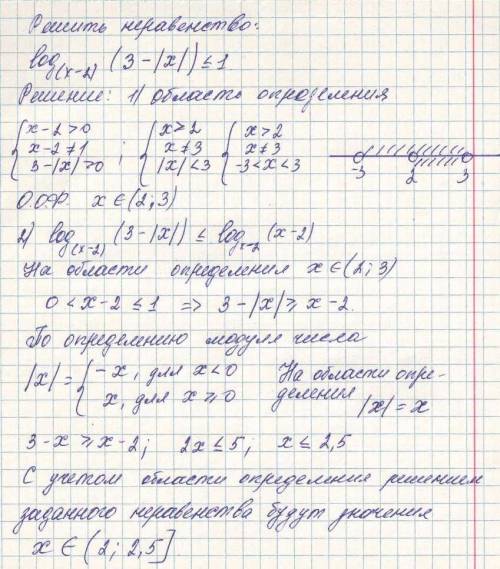 Решить неравенство:
log₍ₓ₋₂₎ (3-|x|) ≤ 1
Решение: 1) Область определения
{ x-2>0 ; { x>2 { x>2
{ x-2≠1 { x≠3 { x≠3
{ 3-|x|>0 { |x|<3 { -3<x<3
-3 2 3
О.О.Ф. x∈(2;3)
2) log₍ₓ₋₂₎ (3-|x|) ≤ logₓ₋₂ (x-2)
На области определения x∈(2;3)
0<x-2≤1 => 3-|x|≥x-2.
По определению модуля числа
|x|= { -x, для x<0
{ x, для x≥0
На области опре-
деления |x|=x
3-x≥x-2; 2x≤5; x≤2,5
С учетом области определения решением
заданного неравенства будут значения
x∈(2; 2,5]